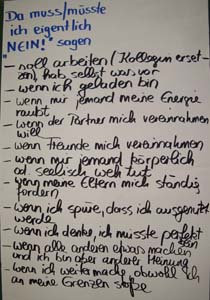 Da muss/müsste
ich eigentlich
"NEIN!" sagen
- soll arbeiten (Kollegin erset-
zen), hab selbst was vor
- wenn ich geladen bin
- wenn mir jemand meine Energie
raubt
- wenn der Partner mich vereinnahmen
will
- wenn Freunde mich vereinnahmen
- wenn mir jemand körperlich
od. seelisch weh tut
- wenn meine Eltern mich ständig
fordern
- wenn ich spüre, dass ich ausgenützt
werde
- wenn ich denke, ich müsste perfekt
sein
- wenn alle anderen etwas machen
und ich bin aber anderer Meinung
- wenn ich weitermache, obwohl ich
an meine Grenzen stoße